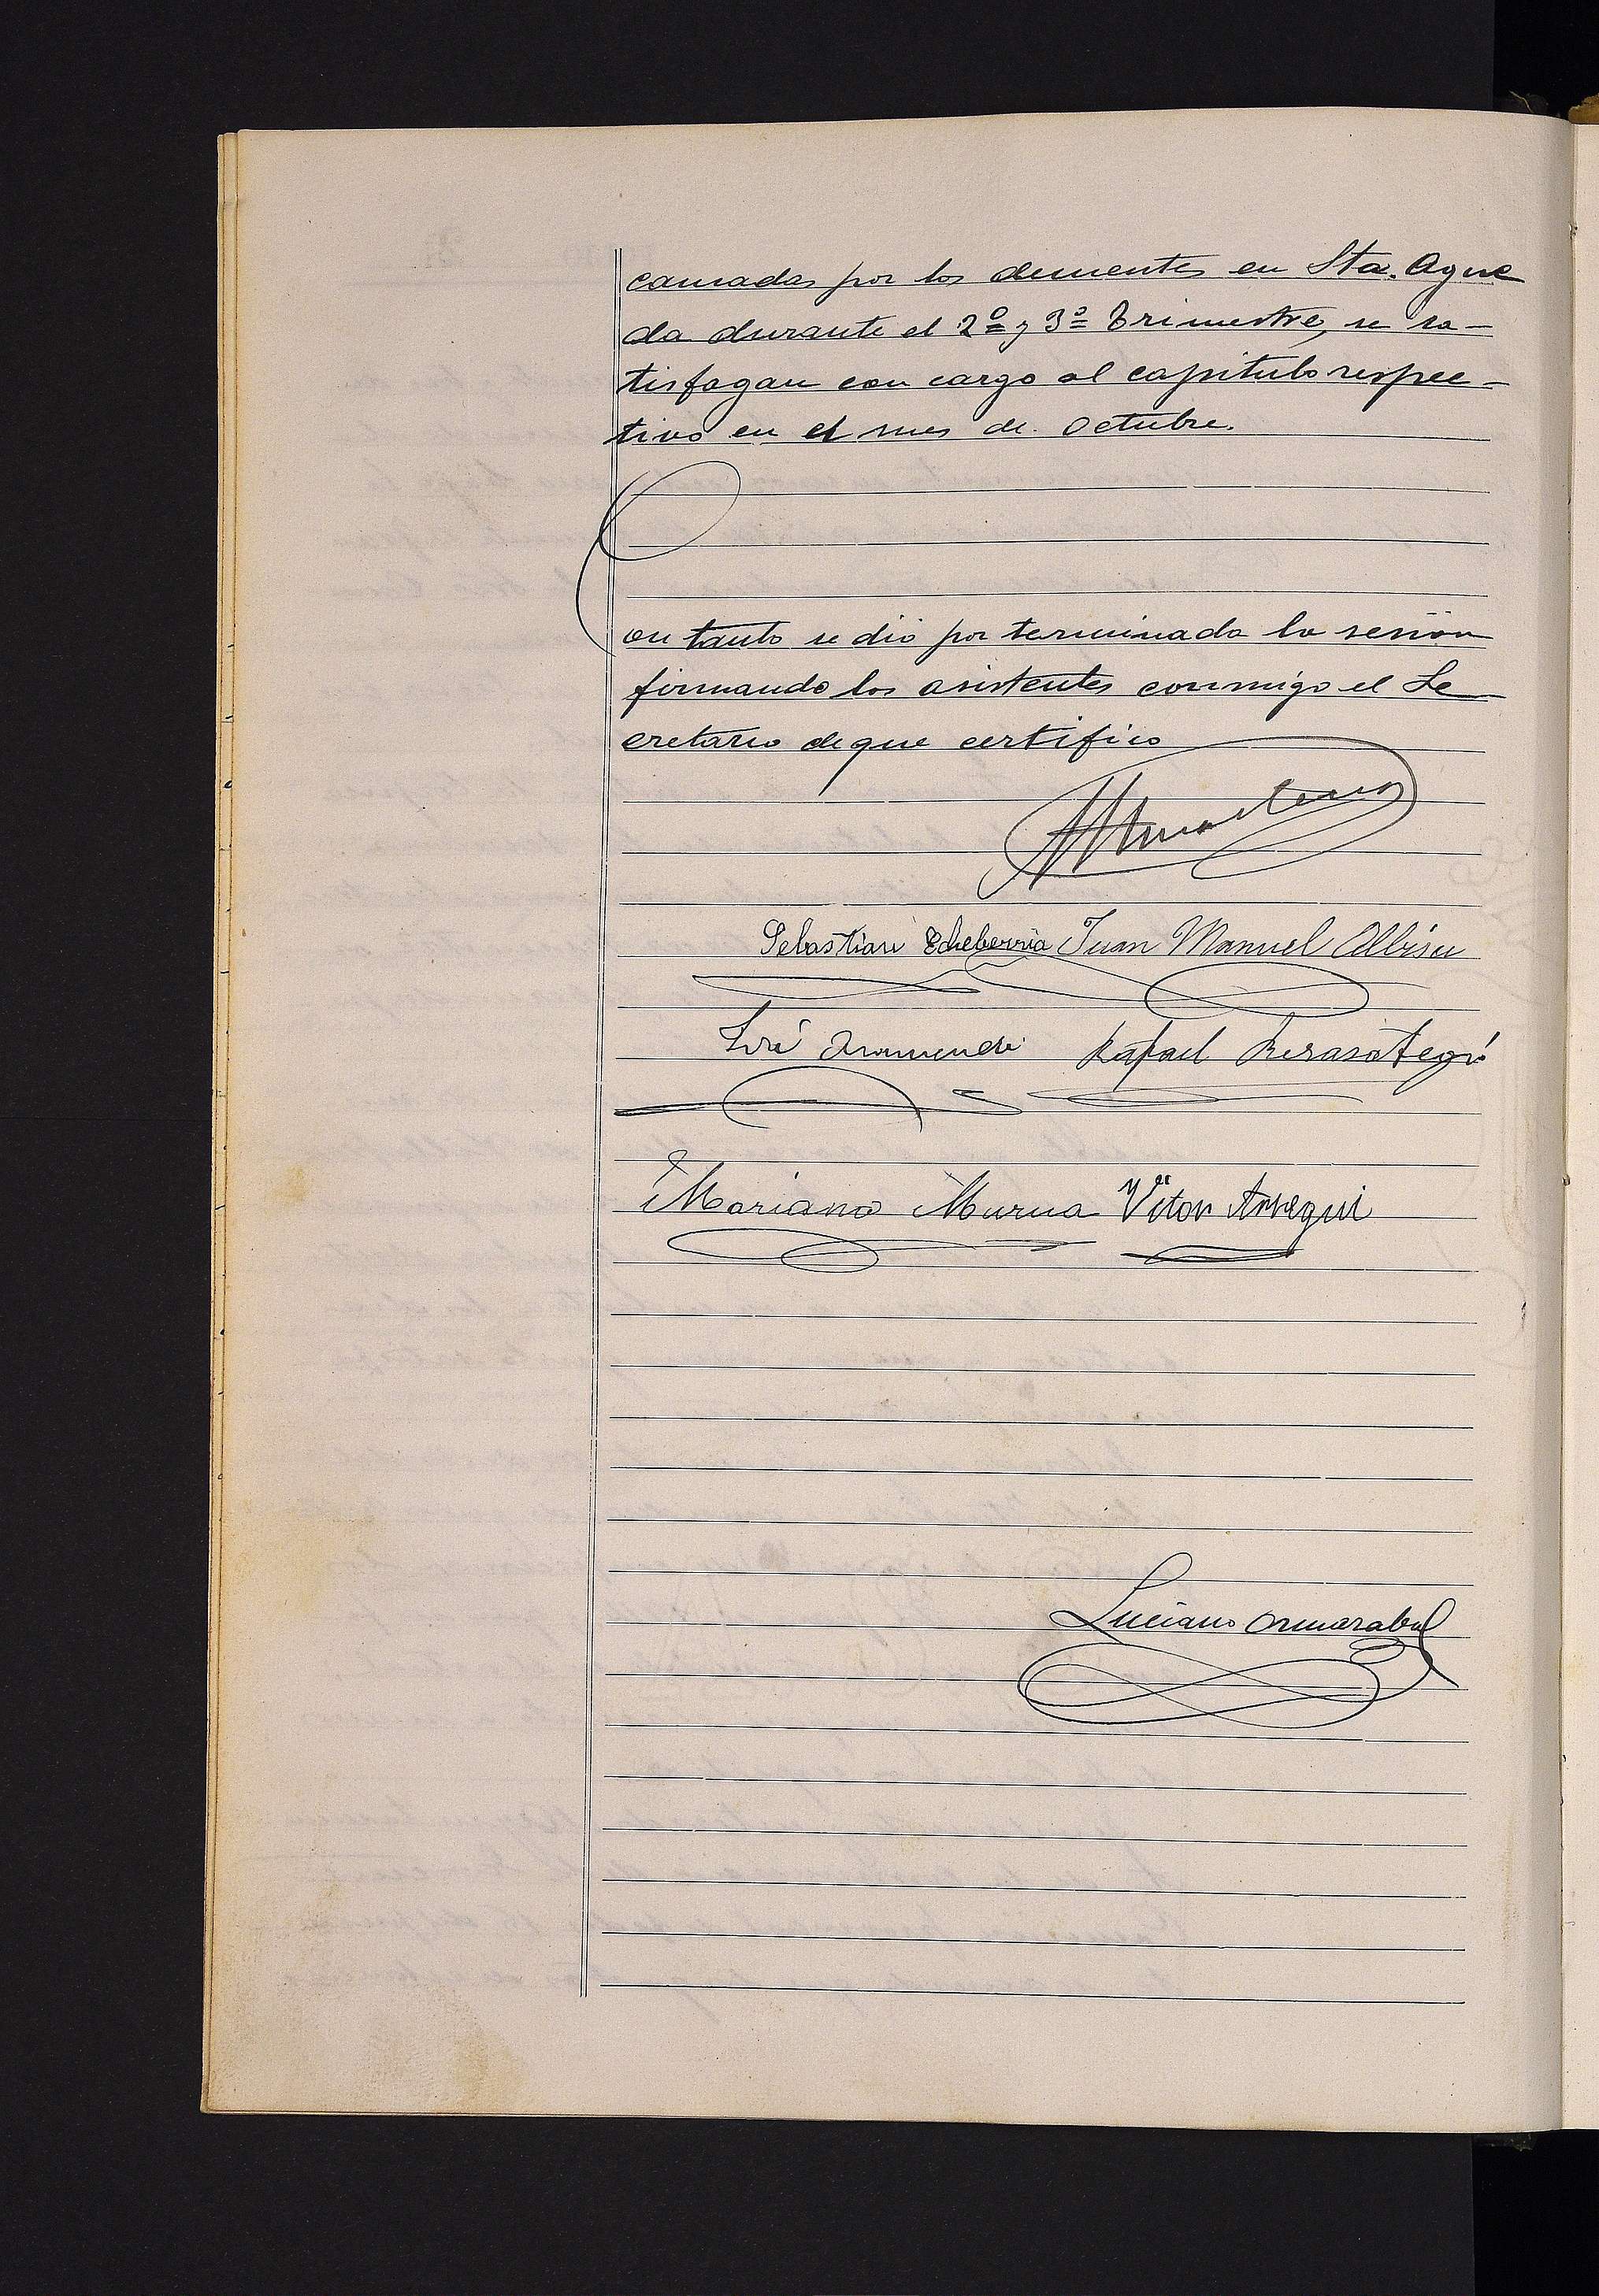 causadas por los dementes en Sta. Ague
da durante el 2º y 3º trimestre, se sa-
tisfagan con cargo al capitulo respec-
tivo en el mes de Octubre.
Con tanto se dió por terminada la sesión
firmando los asistentes conmigo el Se
cretario de que certifico
Sebastian Echeberria Juan Manuel Albisu
José Aramendi Rafael Berasategui
Mariano Murua Vitor Arregui
Luciano Ormazabal